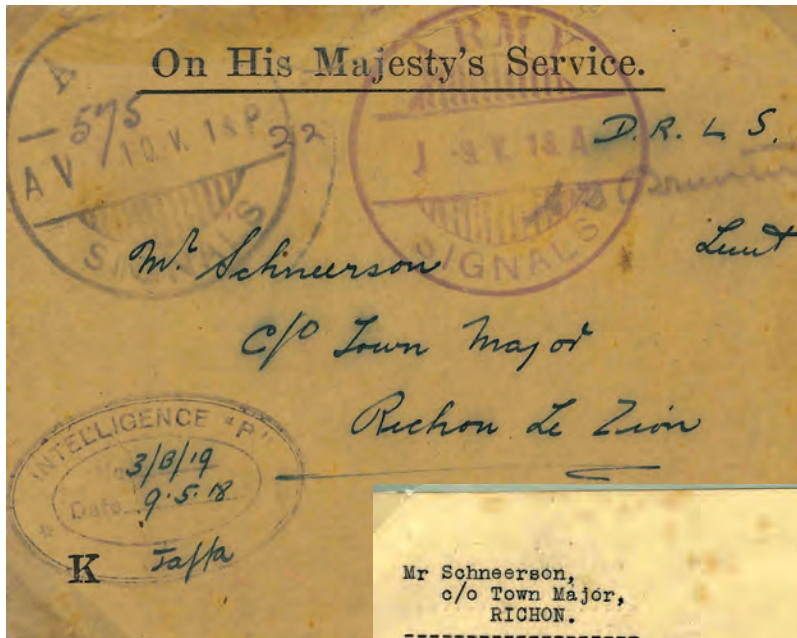 On His Majesty's Service.
ARMY
J -9.V.18.A
SIGNALS
A
575
AV 10.V.18.P
SIGNALS
22
D.R.L.S.
Lieut
Mr Schneerson
c/o Town Major
Richon Le Zion
INTELLIGENCE "P"
No. 3/B/19
Date 9.5.18
K Jaffa
Mr Schneerson,
c/o Town Major,
RICHON.